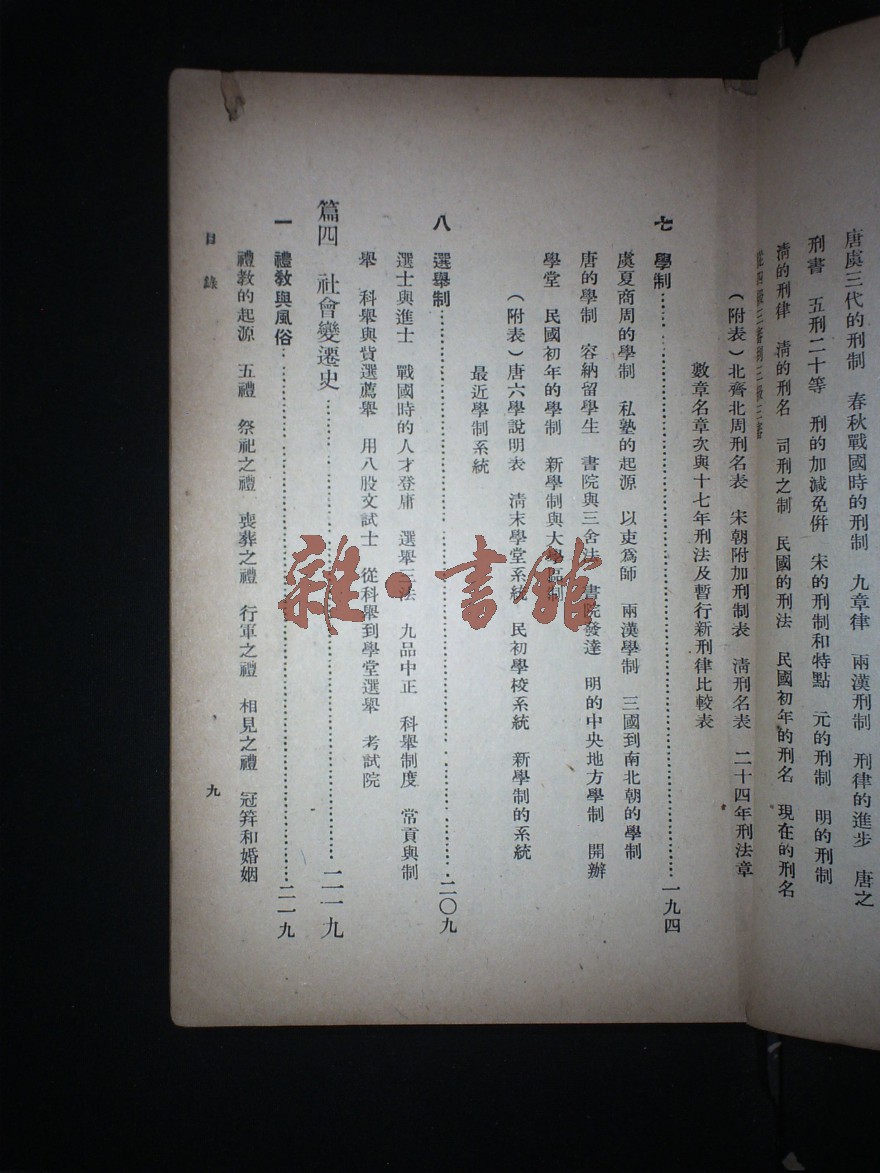 唐虞三代的刑制 春秋戰國時的刑制 九章律 兩漢刑制 刑律的進步 唐之
刑書 五刑二十等 刑的加減免併 宋的刑制和特點 元的刑制 明的刑制
清的刑律 清的刑名 司刑之制 民國的刑法 民國初年的刑名 現在的刑名
從四級三審到三級三審
(附表)北齊北周刑名表 宋朝附加刑制表 清刑名表 二十四年刑法章
數章名章次與十七年刑法及暫行新刑律比較表
七 學制……一九四
虞夏商周的學制 私塾的起源 以吏爲師 兩漢學制 三國到南北朝的學制
唐的學制 容納留學生 書院與三舍法 書院發達 明的中央地方學制 開辦
學堂 民國初年的學制 新學制與大學區制
(附表)唐六學說明表 清末學堂系統 民初學校系統 新學制的系統
最近學制系統
八 選舉制……二〇九
選士與進士 戰國時的人才登庸 選舉三法 九品中正 科舉制度 常貢與制
舉 科舉與貲選薦舉 用八股文試士 從科舉到學堂選舉 考試院
篇四 社會變遷史……二一九
一 禮教與風俗……二一九
禮教的起源 五禮 祭祀之禮 喪葬之禮 行軍之禮 相見之禮 冠笄和婚姻
目錄 九
雜·書館